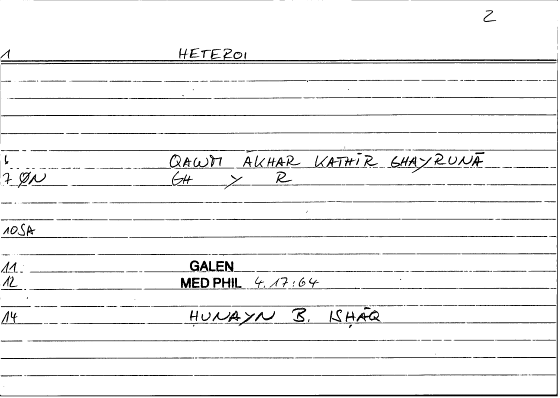 2
1 HETEROI
6 QAWM ĀKHAR KATHĪR GHAYRUNĀ
7 ØN GH Y R
10 SA
11 GALEN
12 MED PHIL 4.17:64
14 ḤUNAYN B. ISḤĀQ